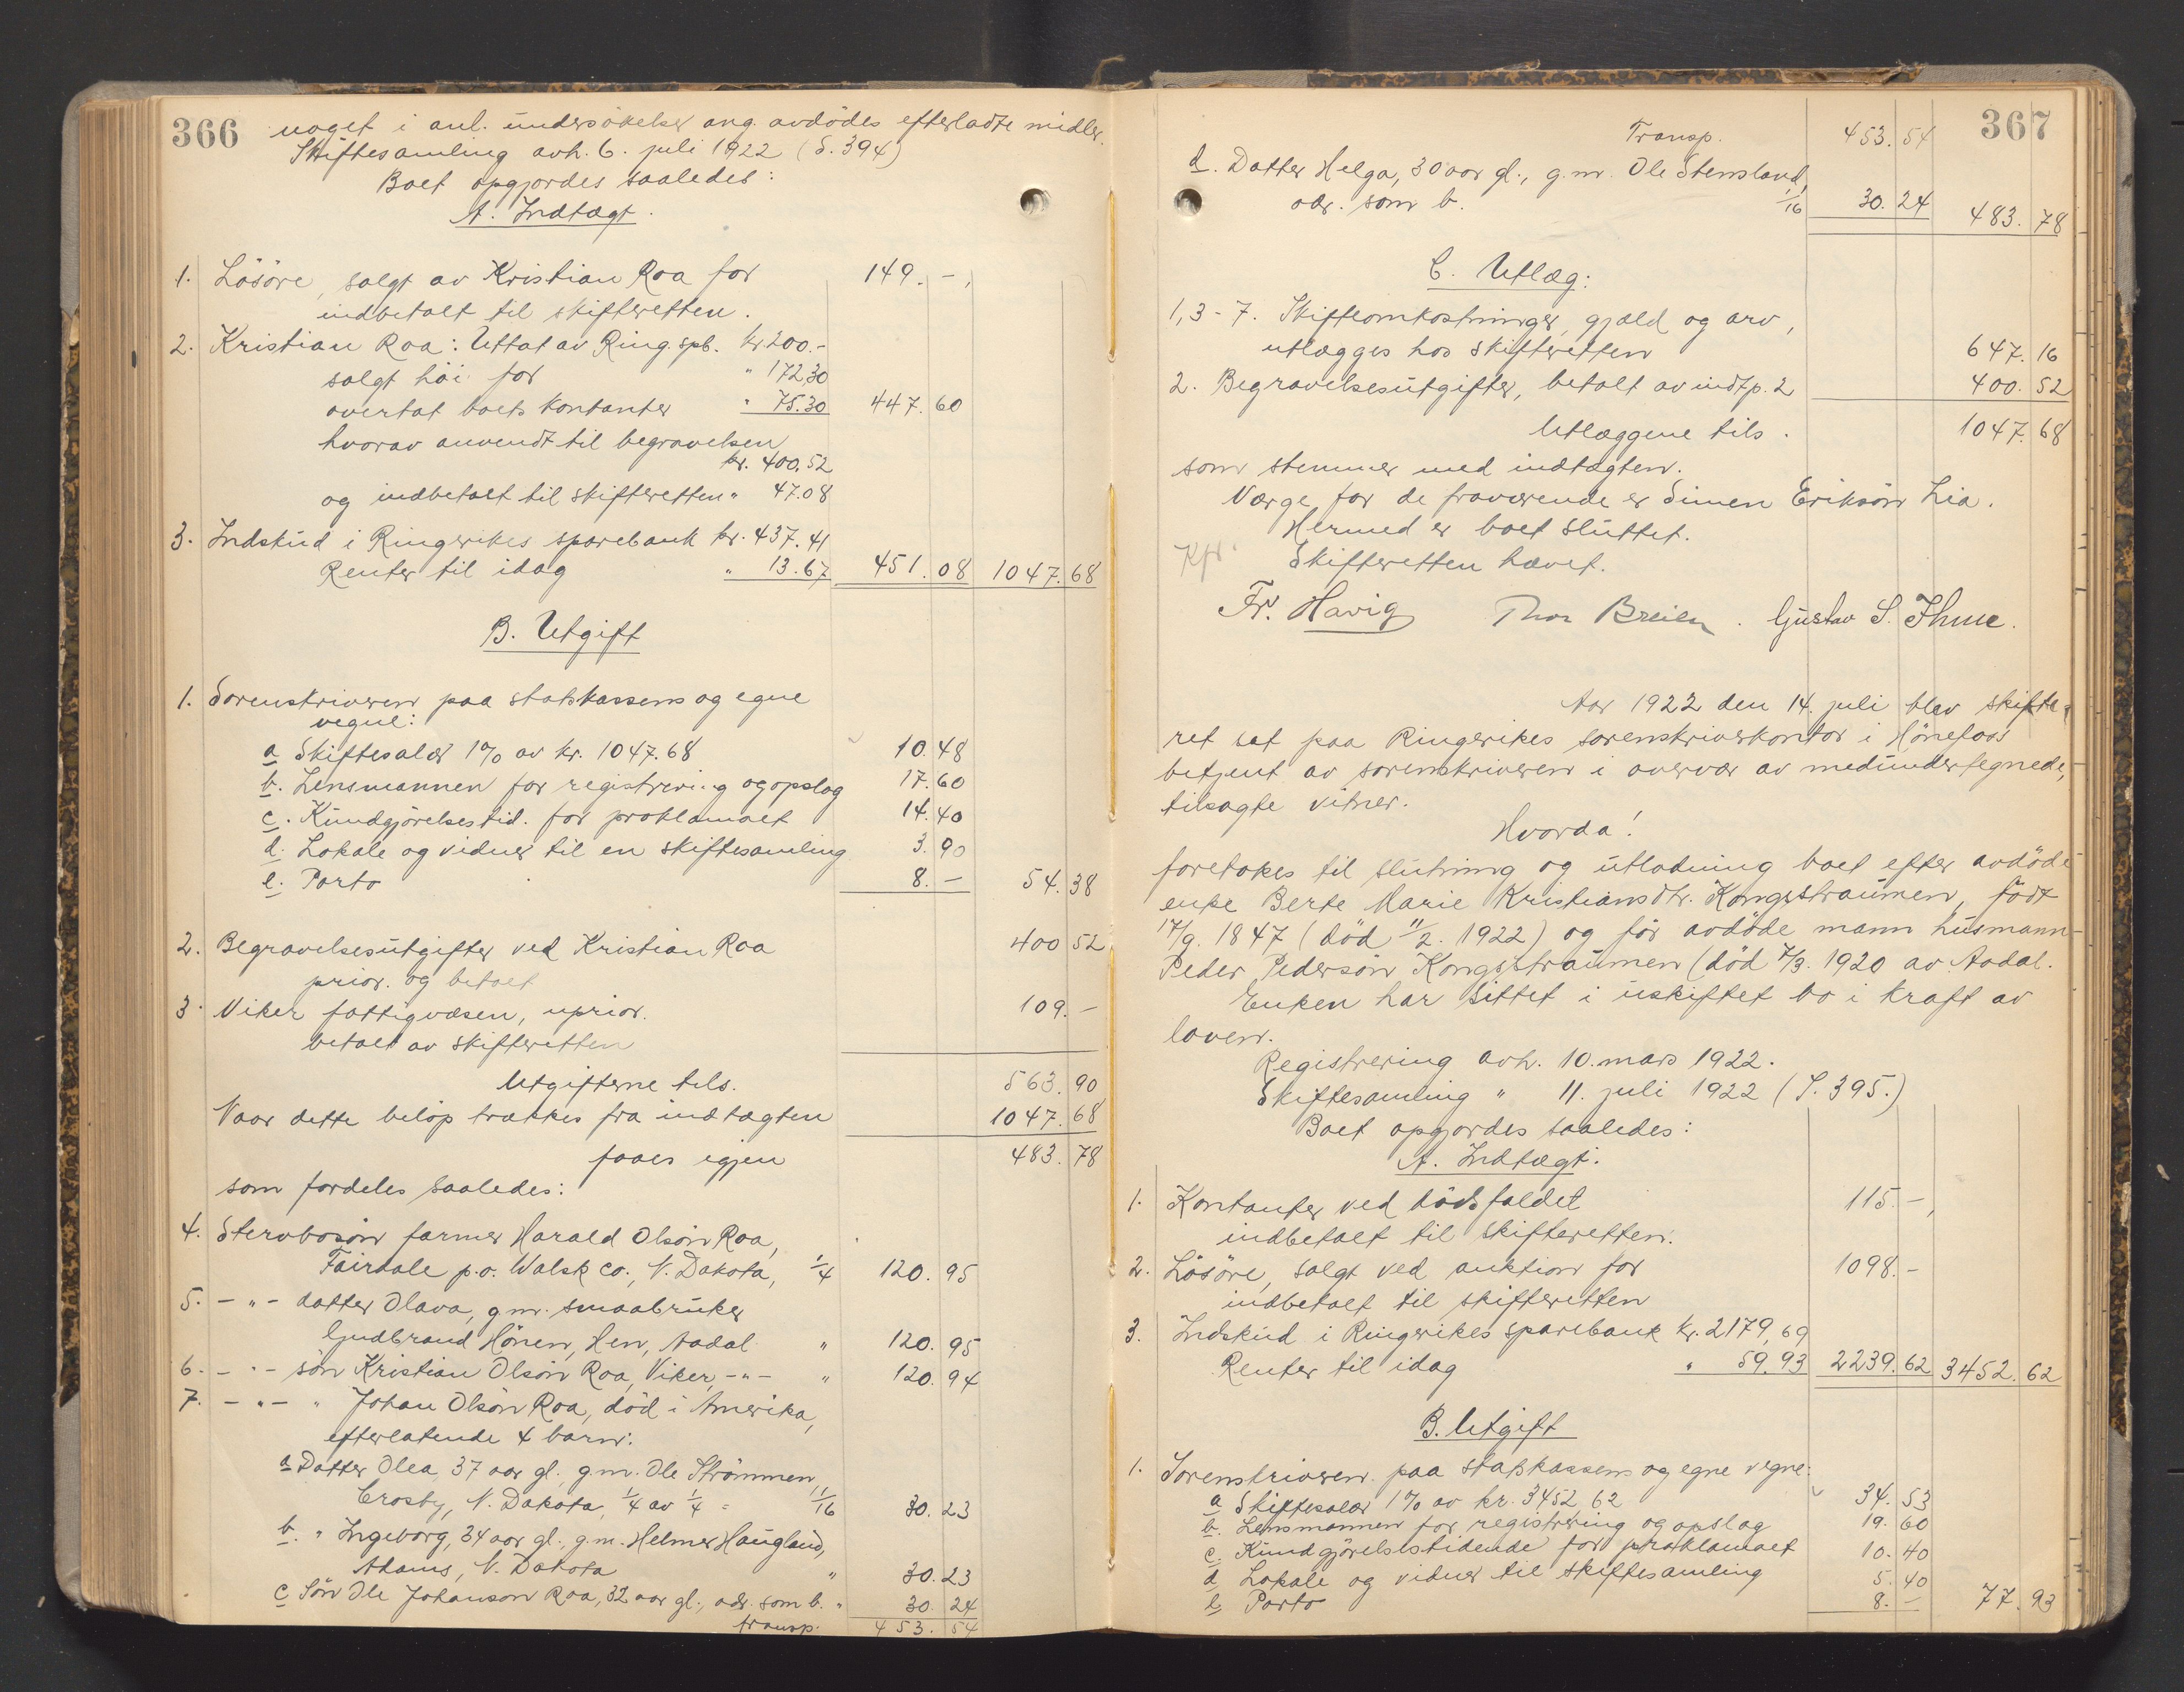 366
noget i anl. undersökelser ang. avdödes efterladte midler.
Skiftesamling avh. 6. juli 1922 (S. 394)
Boet opgjordes saaledes:
A. Indtægt.
1. Lösöre, solgt av Kristian Roa for 149. -,
indbetalt til skifteretten.
2. Kristian Roa: Uttat av Ring. spb. kr 200.-
solgt höi for " 172,30
overtat boets kontanter " 75.30 447. 60
hvorav anvendt til begravelsen
kr. 400.52
og indbetalt til skifteretten " 47.08
3. Indskud i Ringerikes sparebank kr. 437.41
Renter til idag " 13.67 451. 08 1047. 68
B. Utgift
1. Sorenskriveren paa statskassens og egne
vegne:
a Skiftesalær 1% av kr. 1047.68 10. 48
b. Lensmannen for registrering og opslag 17. 60
c. Kundgjörelsestid. for proklamaet 14. 40
d. Lokale og vidner til en skiftesamling 3. 90
e. Porto 8. - 54. 38
2. Begravelsesutgifter ved Kristian Roa 400 52
prior. og betalt
3. Viker fattigvæsen, uprior. 109. -
betalt av skifteretten
Utgifterne tils. 563. 90
Naar dette belöp trækkes fra indtægten 1047. 68
faaes igjen 483. 78
som fordeles saaledes:
4. Stervbosön farmer Harald Olsön Roa,
Fairdale p.o. Walsk co., N. Dakota, 1/4 120. 95
5. - " - datter Olava, g.m. smaabruker
Gudbrand Hönen, Hen, Aadal " 120. 95
6. - " - sön Kristian Olsön Roa, Viker, - " - " 120. 94
7. - " - " Johan Olsön Roa, död i Amerika,
efterlatende 4 barn:
a Datter Olea, 37 aar gl. g.m. Ole Strömmen,
Crosby, N. Dakota, 1/4 av 1/4 = 1/16 30. 23
b. " Ingeborg, 34 aar gl., g.m. Helmer Haugland,
Adams, N. Dakota " 30. 23
c Sön Ole Johanson Roa, 32 aar gl., adr. som b. " 30. 24
transp. 453. 54
367
Transp. 453. 54
d. Datter Helga, 30 aar gl., g.m. Ole Stensland,
adr. som b. 1/16 30. 24 483. 78
C. Utlæg:
1, 3 - 7. Skifteomkostninger, gjæld og arv,
utlægges hos skifteretten 647. 16
2. Begravelsesutgifter, betalt av indtp. 2 400. 52
Utlæggene tils. 1047. 68
som stemmer med indtægten.
Værge for de fraværende er Simen Eriksön Lia.
Hermed er boet sluttet.
Kfr. Skifteretten hævet.
Fr. Havig Thor Breien. Gustav S. Thue.
Aar 1922 den 14. juli blev skifte-
ret sat paa Ringerikes sorenskriverkontor i Hönefoss
betjent av sorenskriveren i overvær av medundertegnede,
tilsagte vitner.
Hvorda!
foretokes til slutning og utlodning boet efter avdöde
enke Berte Marie Kristiansdtr. Kongsstraumen, födt
17/9. 1847 (död 11/2. 1922) og för avdöde mann husmann
Peder Pedersön Kongsstraumen (död 7/3. 1920 av Aadal.
Enken har sittet i uskiftet bo i kraft av
loven.
Registrering avh. 10. mars 1922.
Skiftesamling " 11. juli 1922 (S. 395.)
Boet opgjordes saaledes:
A. Indtægt.
1. Kontanter ved dödsfaldet 115. -,
indbetalt til skifteretten.
2. Lösöre, solgt ved auktion for 1098. -
indbetalt til skifteretten
3. Indskud i Ringerikes sparebank kr. 2179,69
Renter til idag " 59.93 2239. 62 3452. 62
B. Utgift
1. Sorenskriveren paa statskassens og egne vegne:
a Skiftesalær 1% av kr. 3452.62 34. 53
b. Lensmannen for registrering og opslag 19. 60
c. Kundgjörelsestidende for proklamaet 10. 40
d Lokale og vidner til skiftesamling 5. 40
e. Porto 8. - 77. 93